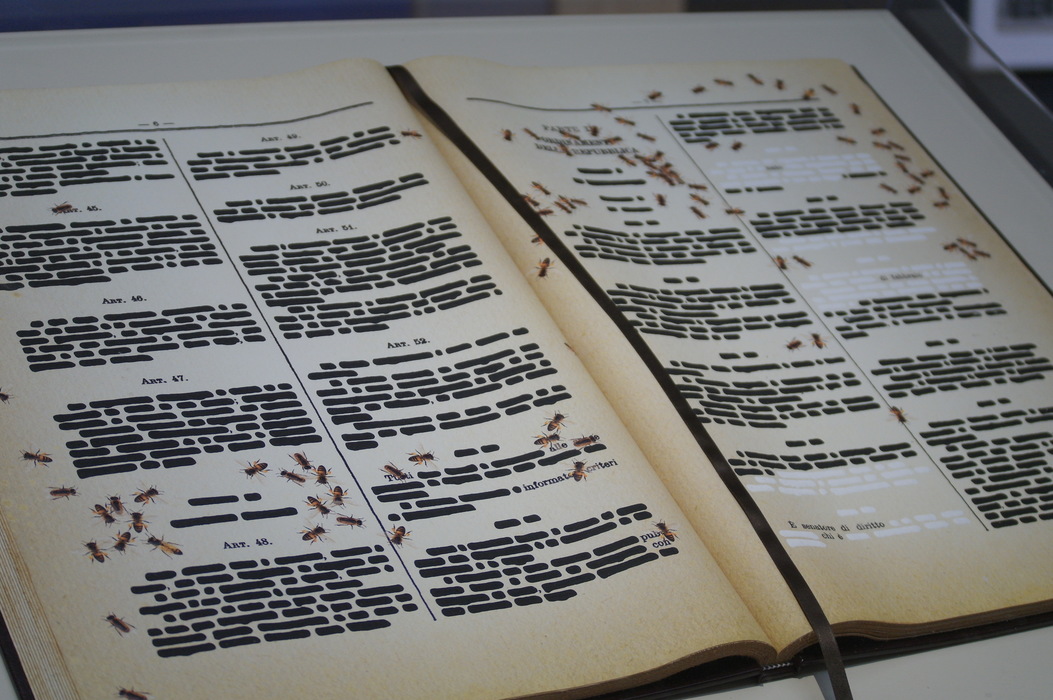 — 6 —
45.
Art. 46.
Art. 47.
Art. 48.
Art. 49.
Art. 50.
Art. 51.
Art. 52.
alle
informat
pub
con
PARTE
DELLA REPUBBLICA
È senatore di diritto
chi è